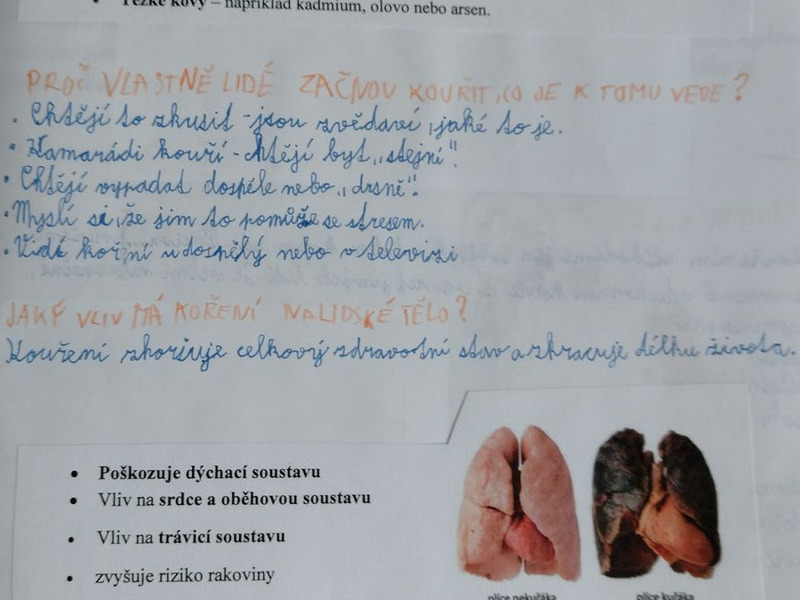 Těžké kovy – například kadmium, olovo nebo arsen.
PROČ VLASTNĚ LIDÉ ZAČNOU KOUŘIT, CO JE K TOMU VEDE?
• Chtějí to zkusit - jsou zvědaví, jaké to je.
• Kamarádi kouří - chtějí být „stejní".
• Chtějí vypadat dospěle nebo „drsně".
• Myslí si, že jim to pomůže se stresem.
• Vidí koření u dospělý nebo v televizi
JAKÝ VLIV MÁ KOŘENÍ NA LIDSKÉ TĚLO?
Kouření zhoršuje celkový zdravotní stav a zkracuje délku života.
• Poškozuje dýchací soustavu
• Vliv na srdce a oběhovou soustavu
• Vliv na trávicí soustavu
• zvyšuje riziko rakoviny
plíce nekuřáka plíce kuřáka